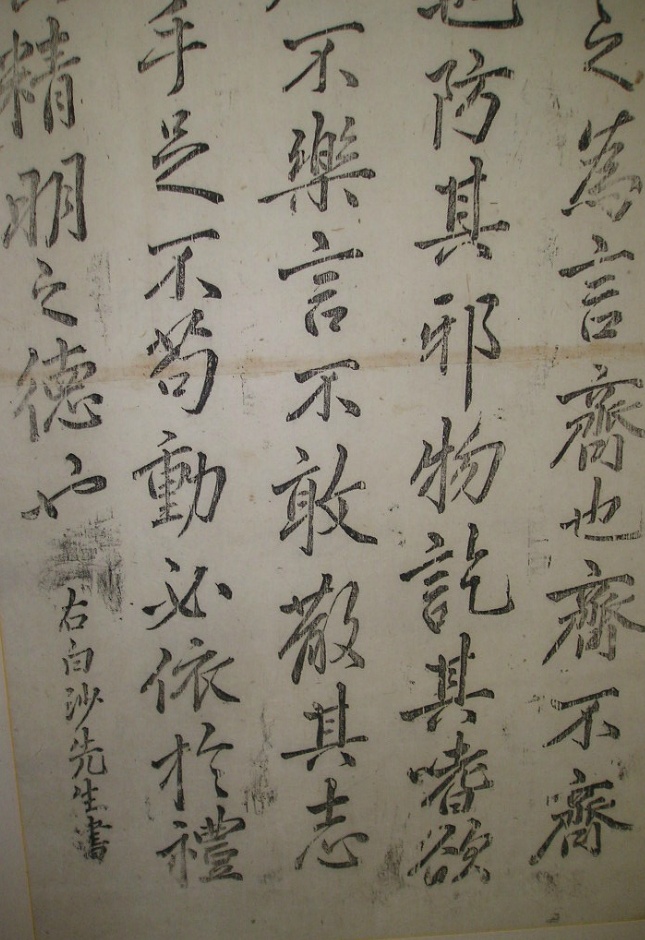 之為言齊也齊不齊
也防其邪物訖其嗜欲
不樂言不敢散其志
手足不苟動必依於禮
精明之德也
右白沙先生書